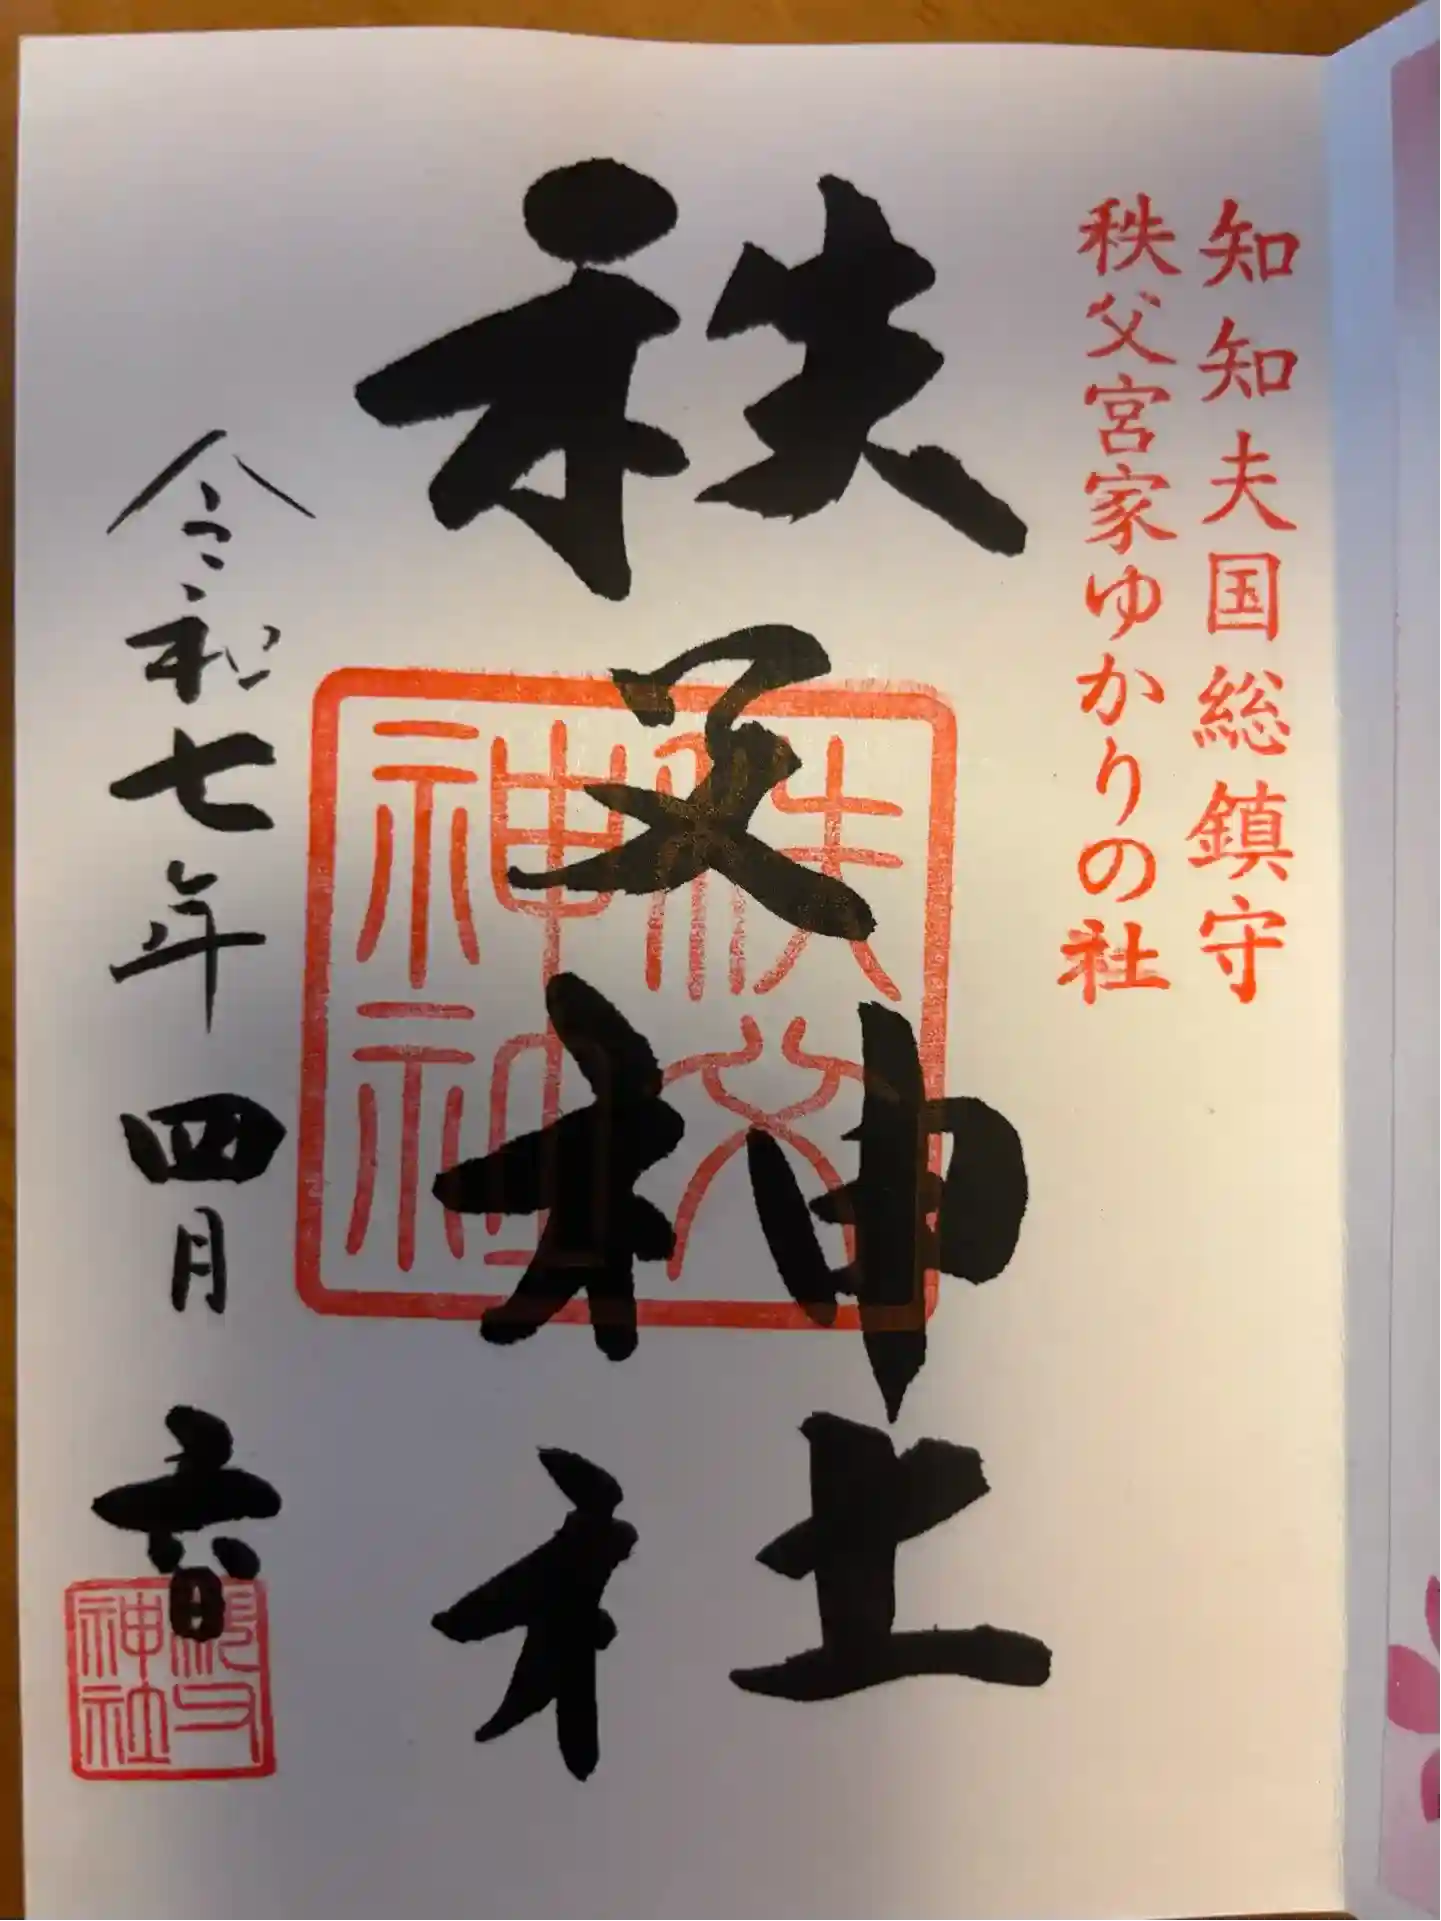 知知夫国総鎮守
秩父宮家ゆかりの社
秩父神社
秩父
神社
令和七年四月六日
神社